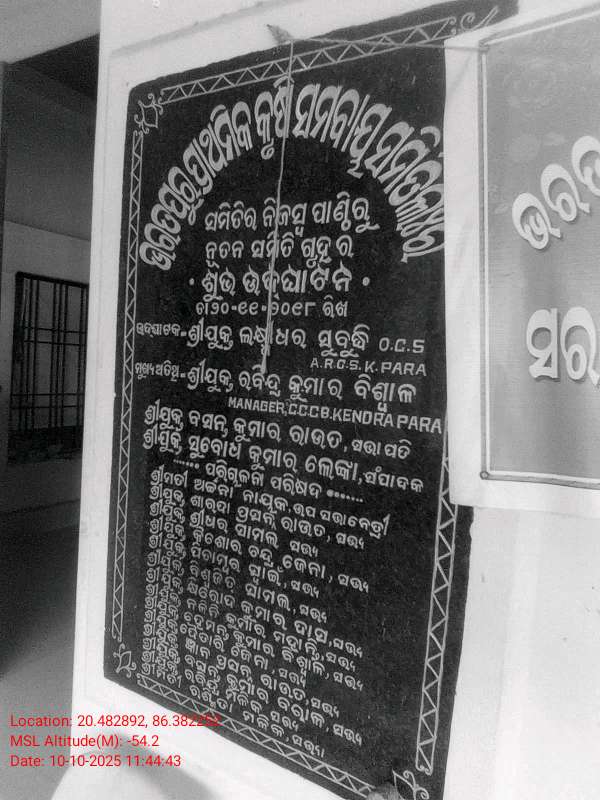 ଭରତପୁର ପ୍ରାଥମିକ କୃଷି ସମବାୟ ସମିତି ଲିଃ
ସମିତିର ନିଜସ୍ୱ ପାଣ୍ଠିରୁ
ନୂତନ ସମିତି ଗୃହ ର
ଶୁଭ ଉଦ୍‌ଘାଟନ
ତା ୨୦-୧୧-୨୦୧୮ ରିଖ
ଉଦ୍‌ଘାଟକ-ଶ୍ରୀଯୁକ୍ତ ଲକ୍ଷ୍ମୀଧର ସୁବୁଦ୍ଧି O.C.S
A.R.C.S. K.PARA
ମୁଖ୍ୟଅତିଥି-ଶ୍ରୀଯୁକ୍ତ ରବିନ୍ଦ୍ର କୁମାର ବିଶ୍ୱାଳ
MANAGER, C.C.C.B. KENDRAPARA
ଶ୍ରୀଯୁକ୍ତ ବସନ୍ତ କୁମାର ରାଉତ, ସଭାପତି
ଶ୍ରୀଯୁକ୍ତ ସୁବୋଧ କୁମାର ଲେଙ୍କା, ସଂପାଦକ
ପରିଚାଳନା ପରିଷଦ
ଶ୍ରୀମତୀ ଅର୍ଚ୍ଚନା ନାୟକ, ଉପ ସଭାନେତ୍ରୀ
ଶ୍ରୀଯୁକ୍ତ ଶାରଦା ପ୍ରସନ୍ନ ରାଉତ, ସଭ୍ୟ
ଶ୍ରୀଯୁକ୍ତ ଶ୍ରୀଧର ସାମଲ, ସଭ୍ୟ
ଶ୍ରୀଯୁକ୍ତ କିଶୋର ଚନ୍ଦ୍ର ଜେନା, ସଭ୍ୟ
ଶ୍ରୀଯୁକ୍ତ ପିତାମ୍ବର ସ୍ୱାଇଁ, ସଭ୍ୟ
ଶ୍ରୀଯୁକ୍ତ ବିଶ୍ୱଜିତ ସାମଲ, ସଭ୍ୟ
ଶ୍ରୀଯୁକ୍ତ କୁମାର ଦାସ, ସଭ୍ୟ
ଶ୍ରୀଯୁକ୍ତ ନଳିନୀ କୁମାର ମହାନ୍ତି, ସଭ୍ୟ
ଶ୍ରୀଯୁକ୍ତ ହେମନ୍ତ କୁମାର ବିଶ୍ୱାଳ, ସଭ୍ୟ
ଶ୍ରୀଯୁକ୍ତ ଜେନା, ସଭ୍ୟ
ଶ୍ରୀଯୁକ୍ତ ଜ୍ଞାନ ପ୍ରସନ୍ନ ରାଉତ, ସଭ୍ୟ
ଶ୍ରୀଯୁକ୍ତ ବସନ୍ତ କୁମାର ବରାଳ, ସଭ୍ୟ
ଶ୍ରୀଯୁକ୍ତ ରବିନ୍ଦ୍ର ମଳିକ, ସଭ୍ୟ
ମଳିକ, ସଭ୍ୟା
ଭରତ
ସର
Location: 20.482892, 86.382252
MSL Altitude(M): -54.2
Date: 10-10-2025 11:44:43